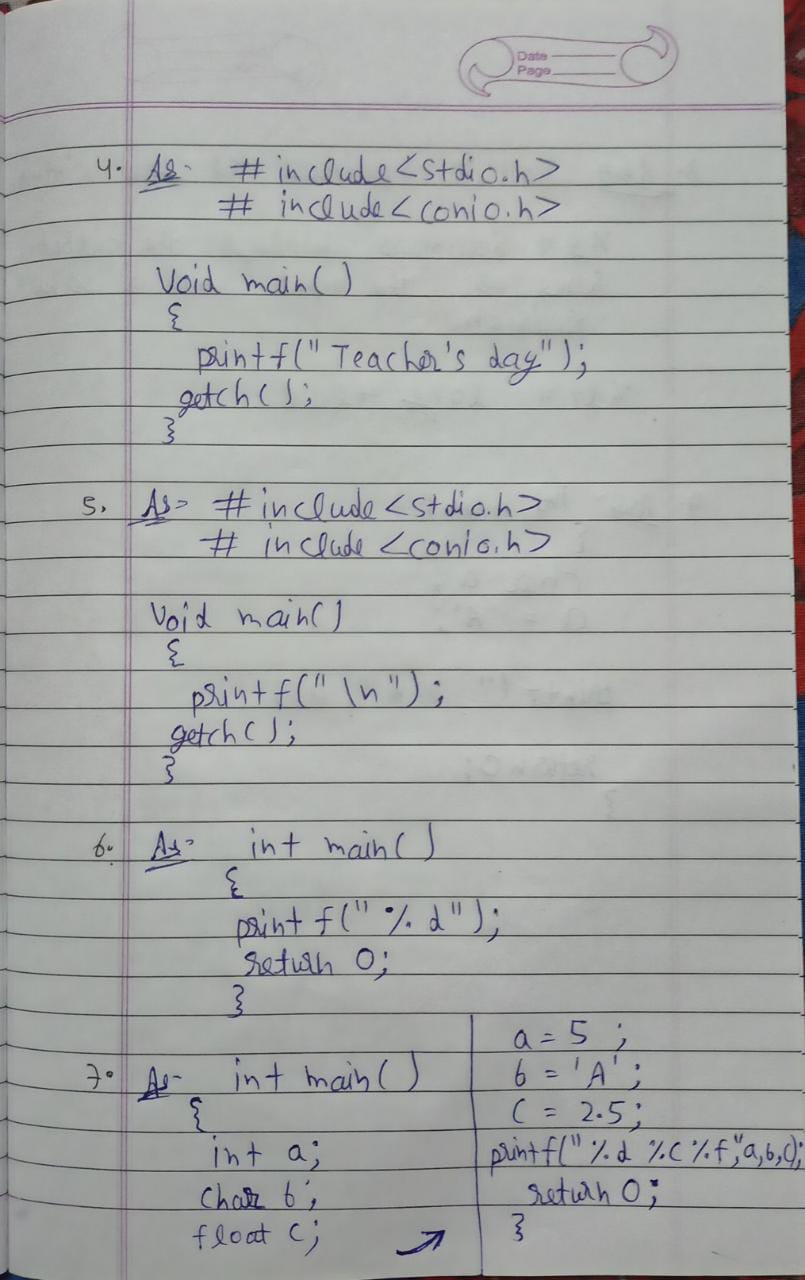 Date
Page
4. As- # include<stdio.h>
# include<conio.h>
Void main()
{
printf("Teacher's day");
getch();
}
5. As- # include<stdio.h>
# include<conio.h>
Void main()
{
printf("\n");
getch();
}
6. As- int main()
{
print f("%d");
return 0;
}
7. As- int main()
{
int a;
Char b;
float c;
a = 5 ;
b = 'A' ;
C = 2.5 ;
printf("%d %c %f",a,b,c);
return 0;
}